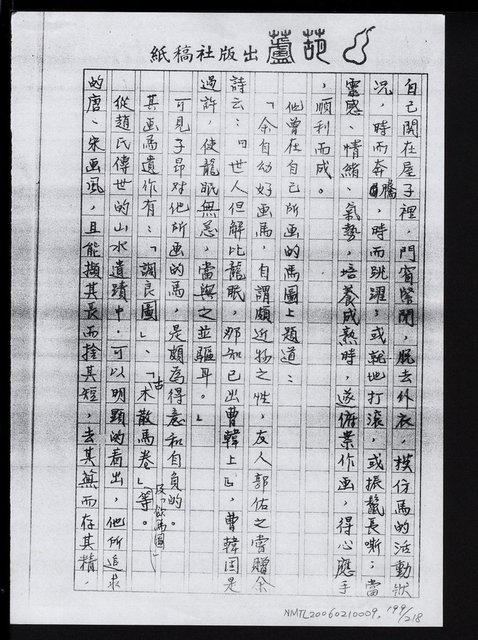 紙稿社版出蘆葫
自己関在屋子裡，門窗緊閉，脱去外衣，模仿馬的活動狀
況，時而奔騰，時而跳躍；或就地打滾，或振鬣長嘶；當
靈感、情緒、氣勢，培養成熟時，遂俯案作画，得心應手
，順利而成。
他曾在自己所画的馬圖上題道：
「余自幼好画馬，自謂頗近物之性，友人郭佑之嘗贈余
詩云：『世人但解比龍眠，那知已出曹韓上』，曹韓固是
過許，使龍眠無恙，當與之並驅耳。」
可見子昂对他所画的馬，是頗為得意和自負的。
其画馬遺作有：「調良圖」、「古木散馬卷」及「飲馬圖」等。
從趙氏傳世的山水遺蹟中，可以明顯的看出，他所追求
的唐、宋画風，且能擷其長而捨其短，去其蕪而存其精，
NMTL20060210009, 199/218